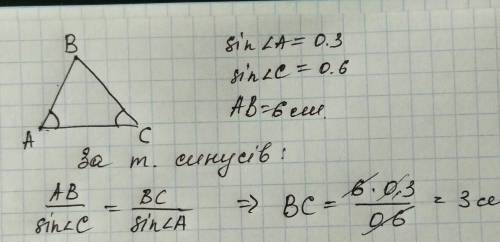 B
A
C
sin∠A = 0.3
sin∠C = 0.6
AB = 6 см.
За т. синусів:
AB/sin∠C = BC/sin∠A ⇒ BC = 6 · 0,3/0,6 = 3 см